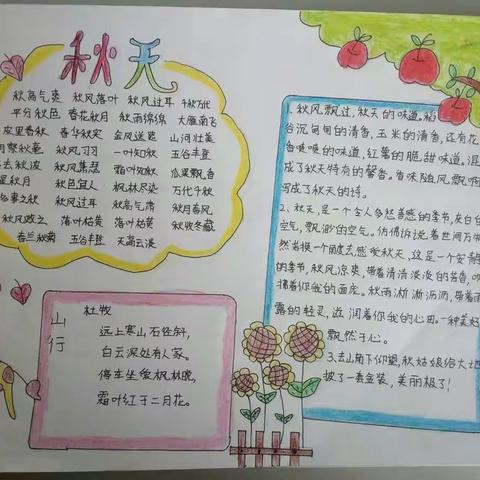 秋天
秋高气爽 秋风落叶 秋风过耳 千秋万代
平分秋色 春花秋月 秋雨绵绵 大雁南飞
皮里春秋 春华秋实 金风送爽 山河壮美
秋风习习 一叶知秋 五谷丰登
秋波 秋风萧瑟 霜叶知秋 瓜果飘香
秋月 秋色宜人 枫林尽染 万代千秋
多事之秋 秋风过耳 秋高气爽 秋月春风
秋风败之 落叶枯黄 落叶枯黄 秋收冬藏
春兰秋菊 五谷丰登 天高云淡
山行
杜牧
远上寒山石径斜,
白云深处有人家。
停车坐爱枫林晚,
霜叶红于二月花。
1、秋风飘过,秋天的味道,稻
谷沉甸甸的清香,玉米的清香,还有花
香喷喷的味道,红薯的脆甜味道,混
成了秋天特有的馨香。香味随风飘啊
写成了秋天的诗。
2、秋天,是一个令人多愁善感的季节,灰白
空气,飘渺的空气。仿佛诉说着世间万物
然若换一个角度去感受秋天,这是一个安静
的季节,秋风凉爽,带着清清淡淡的苦香,
拂着你我的面庞。秋雨淅淅沥沥,带着雨
露的轻灵,滋润着你我的心田。一种美好
飘然于心。
3、去山岗下仰望,秋姑娘给大地
披了一套金装,美丽极了!